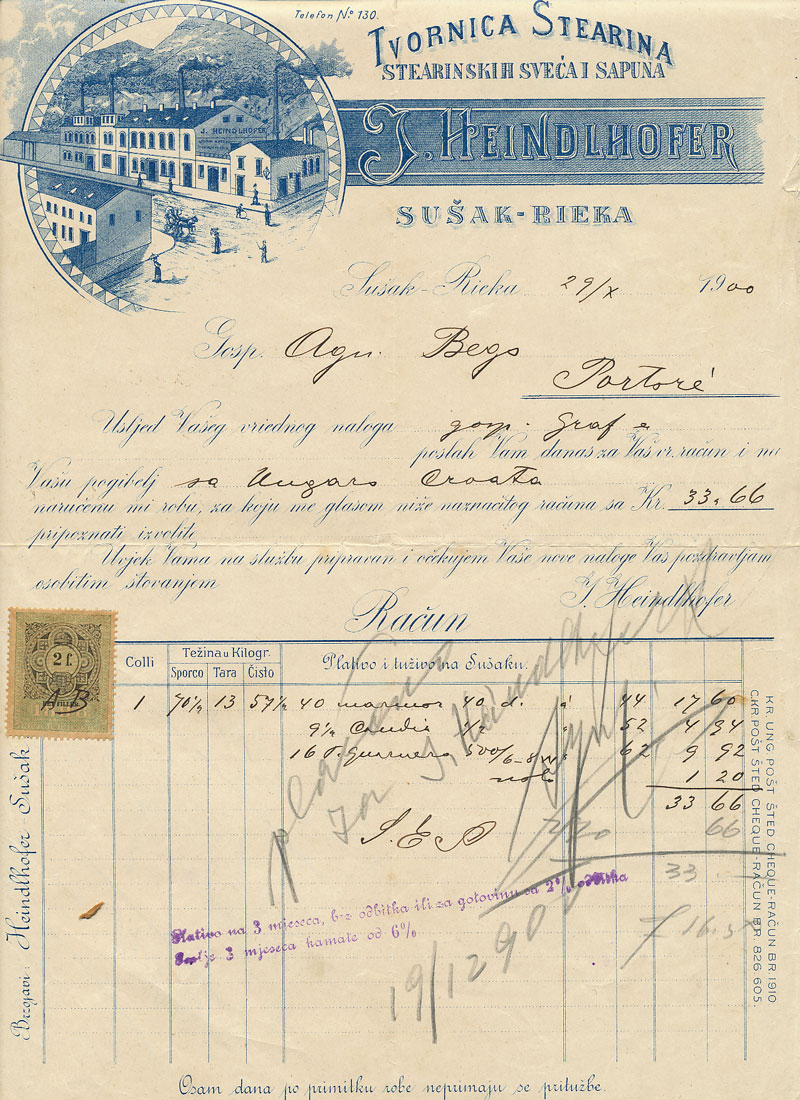 Telefon No 130.
TVORNICA STEARINA
STEARINSKIH SVEĆA I SAPUNA
J. HEINDLHOFER
J. HEINDLHOFER
SUŠAK-RIEKA
Sušak-Rieka 29/X 1900
Gosp. Agn. Bego
Portoré
Usljed Vašeg vriednog naloga gosp. Graf a
poslah Vam danas za Vaš vr. račun i na
Vašu pogibelj sa Ungaro Croata
naručenu mi robu, za koju me glasom niže naznačitog računa sa Kr. 33.66
pripoznati izvolite.
Uvjek Vama na službu pripravan i očekujem Vaše nove naloge Vas pozdravljam
osobitim štovanjem
J. Heindlhofer
Račun
2 f.
FILLÉR
Colli Težina u Kilogr. Plativo i tuživo na Sušaku.
Sporco Tara Čisto
1 70½ 13 57½ 40 marmor 40 d. á 44 17 60
9½ Candia 4/2 " 52 4 94
16 500/6-8 " 62 9 92
1 20
33 66
S. E. O.
66
33
plaćeno
za J. Heindlhofer
Plativo na 3 mjeseca, bez odbitka ili za gotovinu sa 2% odbitka
Poslje 3 mjeseca kamate od 6%
19/12 900
7 16.5
KR. UNG POŠT ŠTED CHEQUE-RAČUN BR 1910
C.KR. POŠT ŠTED CHEQUE-RAČUN BR 826 605.
Brzojavi: Heindlhofer Sušak
Osam dana po primitku robe neprimaju se pritužbe.